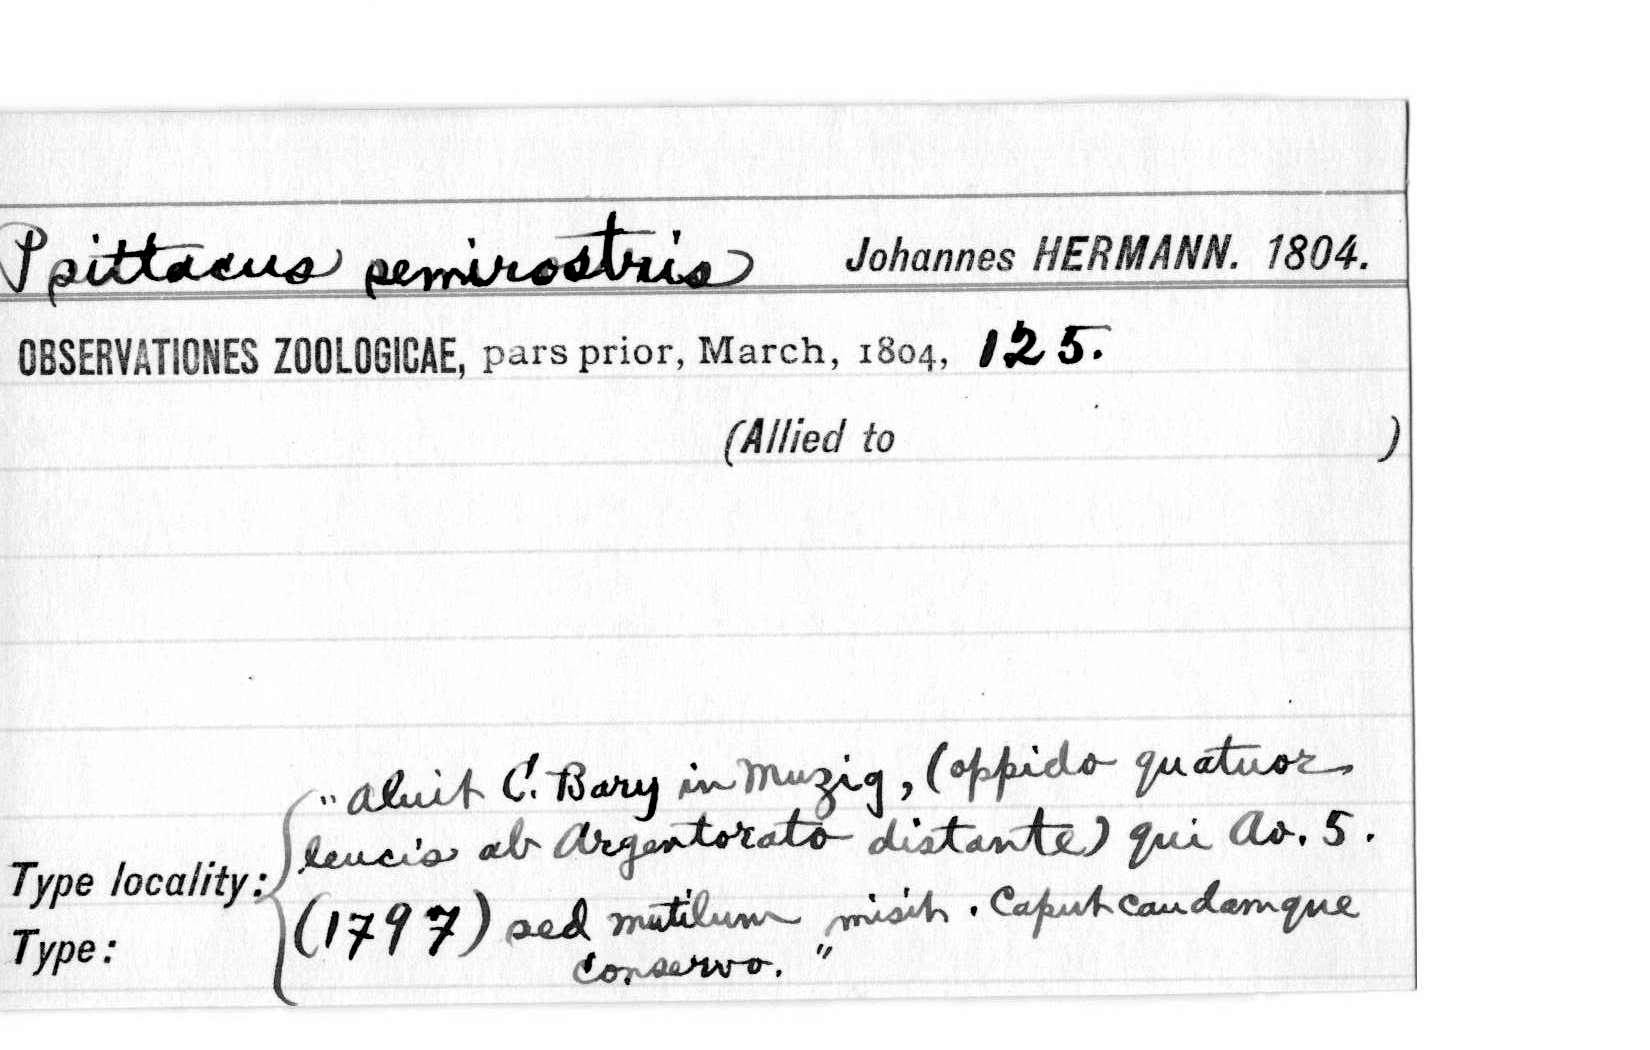 Psittacus semirostris Johannes HERMANN. 1804.
OBSERVATIONES ZOOLOGICAE, pars prior, March, 1804, 125.
(Allied to )
"Aluit C. Bary in Muzig, (oppido quatuor
leucis ab Argentorato distante) qui Ao. 5.
Type locality:
(1797) sed mutilum misit. Caput caudamque
Type:
conservo."